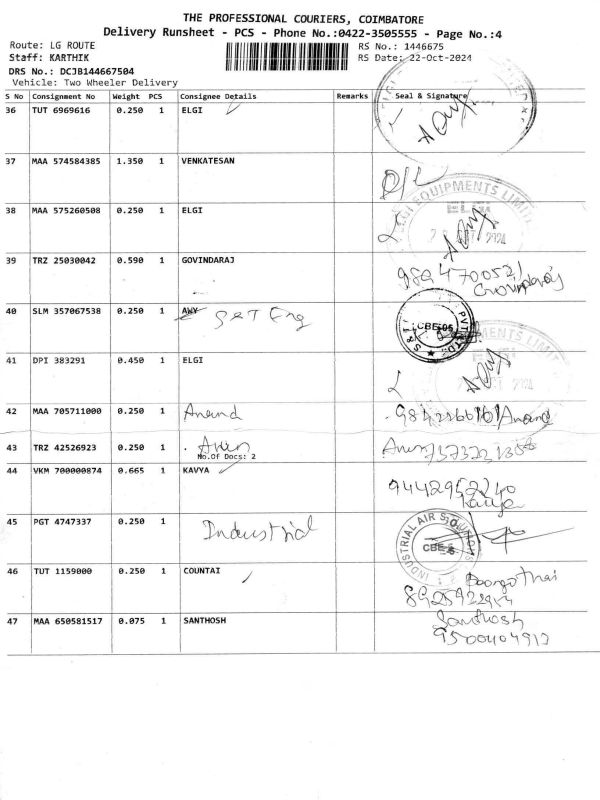 THE PROFESSIONAL COURIERS, COIMBATORE
Delivery Runsheet - PCS - Phone No.:0422-3505555 - Page No.:4
Route: LG ROUTE RS No.: 1446675
Staff: KARTHIK RS Date: 22-Oct-2024
DRS No.: DCJB144667504
Vehicle: Two Wheeler Delivery
S No Consignment No Weight PCS Consignee Details Remarks Seal & Signature
36 TUT 6969616 0.250 1 ELGI
37 MAA 574584385 1.350 1 VENKATESAN
38 MAA 575260508 0.250 1 ELGI
ELGI EQUIPMENTS LIMIT
ELGI
39 TRZ 25030042 0.590 1 GOVINDARAJ
Govindaraj
40 SLM 357067538 0.250 1 S&T Eng
CBE-05
PVT LTD
41 DPI 383291 0.450 1 ELGI
MENTS LIMIT
ELGI
42 MAA 705711000 0.250 1 Anand Anand
43 TRZ 42526923 0.250 1 Arun Arun
No.Of Docs: 2
44 VKM 700000874 0.665 1 KAVYA
Kavya
45 PGT 4747337 0.250 1 Industrial
INDUSTRIAL AIR SOLUTIONS
46 TUT 1159000 0.250 1 COUNTAI
47 MAA 650581517 0.075 1 SANTHOSH Santhosh
9500404912